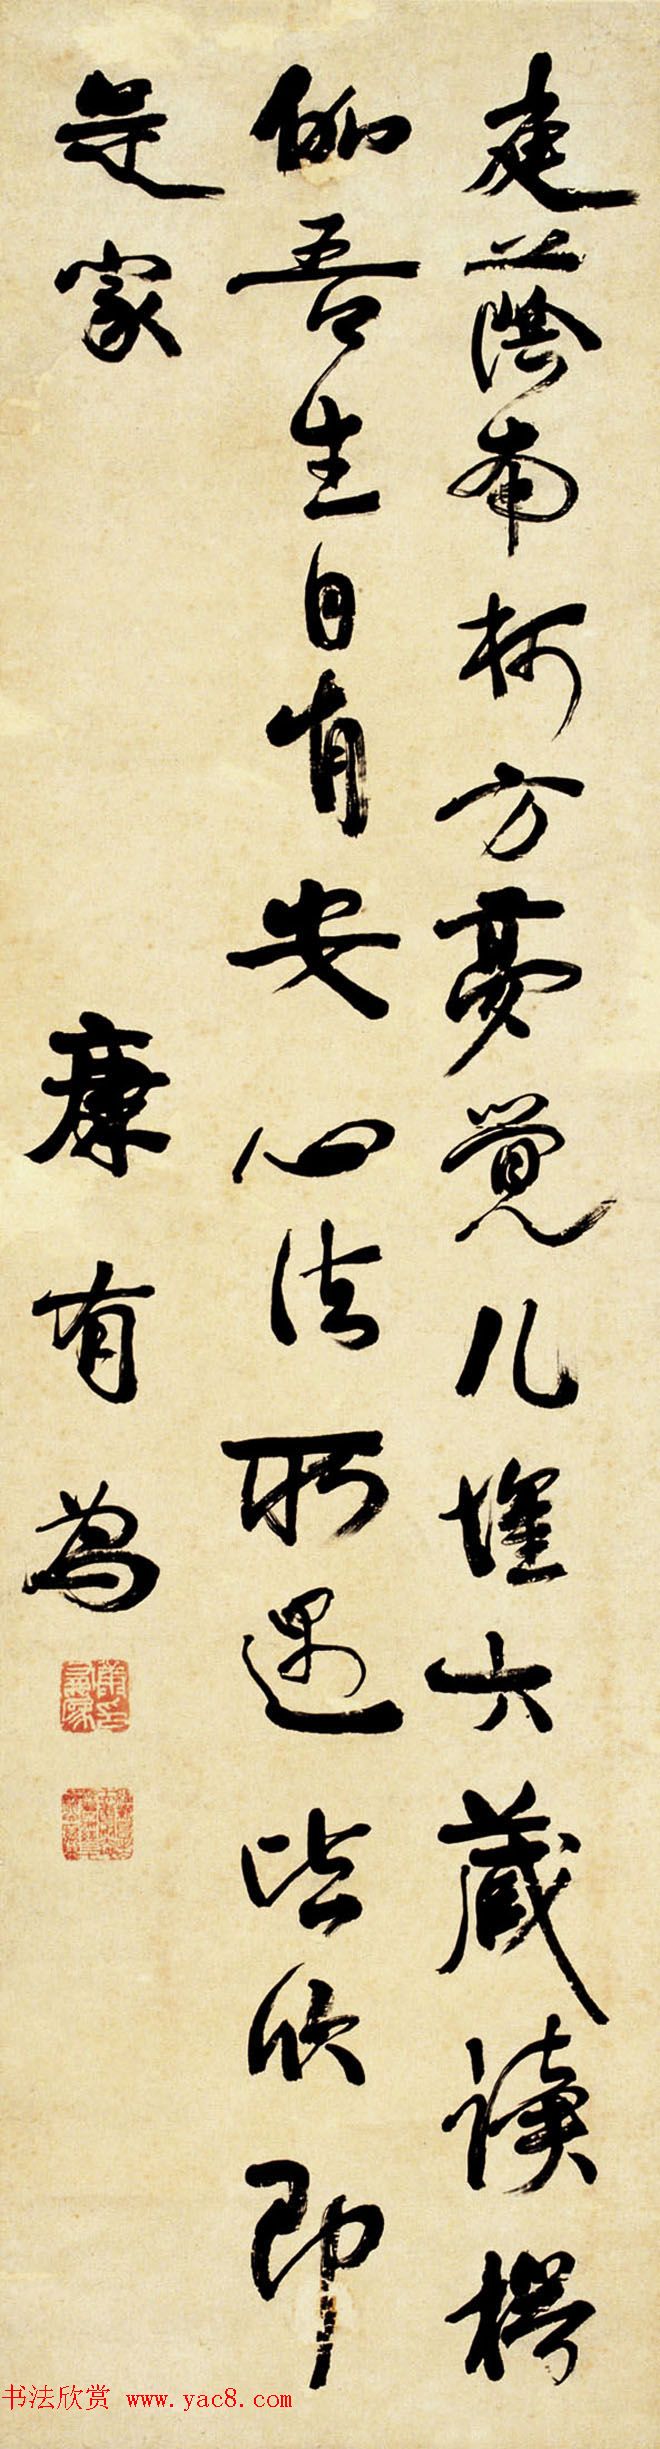 庭蔭南柯方夢覺几堆大藏讀楞
伽吾生自有安心法所遇皆欣即
是家
康有為
书法欣赏 www.yac8.com